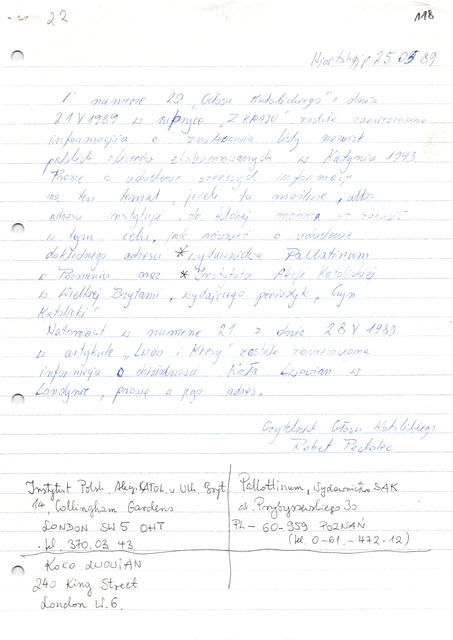 22
118
25 05 89
W numerze 20 „Głosu Katolickiego" z dnia
21 V 1989 w rubryce „Z KRAJU" została zamieszczona
informacja o znalezieniu listy nazwisk
polskich oficerów ekshumowanych w Katyniu 1943
Proszę o udzielenie szerszych informacji
na ten temat, jeżeli to możliwe, albo
adresu instytucji, do której można się zwrócić
w tym celu, jak również o udzielenie
dokładnego adresu *wydawnictwa Pallatinum
w Poznaniu oraz * Instytutu Akcji Katolickiej
w Wielkiej Brytanii, wydającego periodyk „Czyn
Katolicki"
Natomiast w numerze 21 z dnia 28 V 1989
w artykule „Lwów i Kresy" została zamieszczona
informacja o działalności Koła Lwowian w
Londynie, proszę o jego adres.
Czytelnik Głosu Katolickiego
Instytut Polsk. Akcji KATOL. w Wlk. Bryt
14, Collingham Gardens
LONDON SW5 OHT
tel. 370.03 43
KOŁO LWOWIAN
240 King Street
London W.6.
Pallottinum, Wydawnictwo SAK
ul. Przybyszewskiego 30
PL - 60-959 POZNAŃ
(tel. 0-61.-472-12)